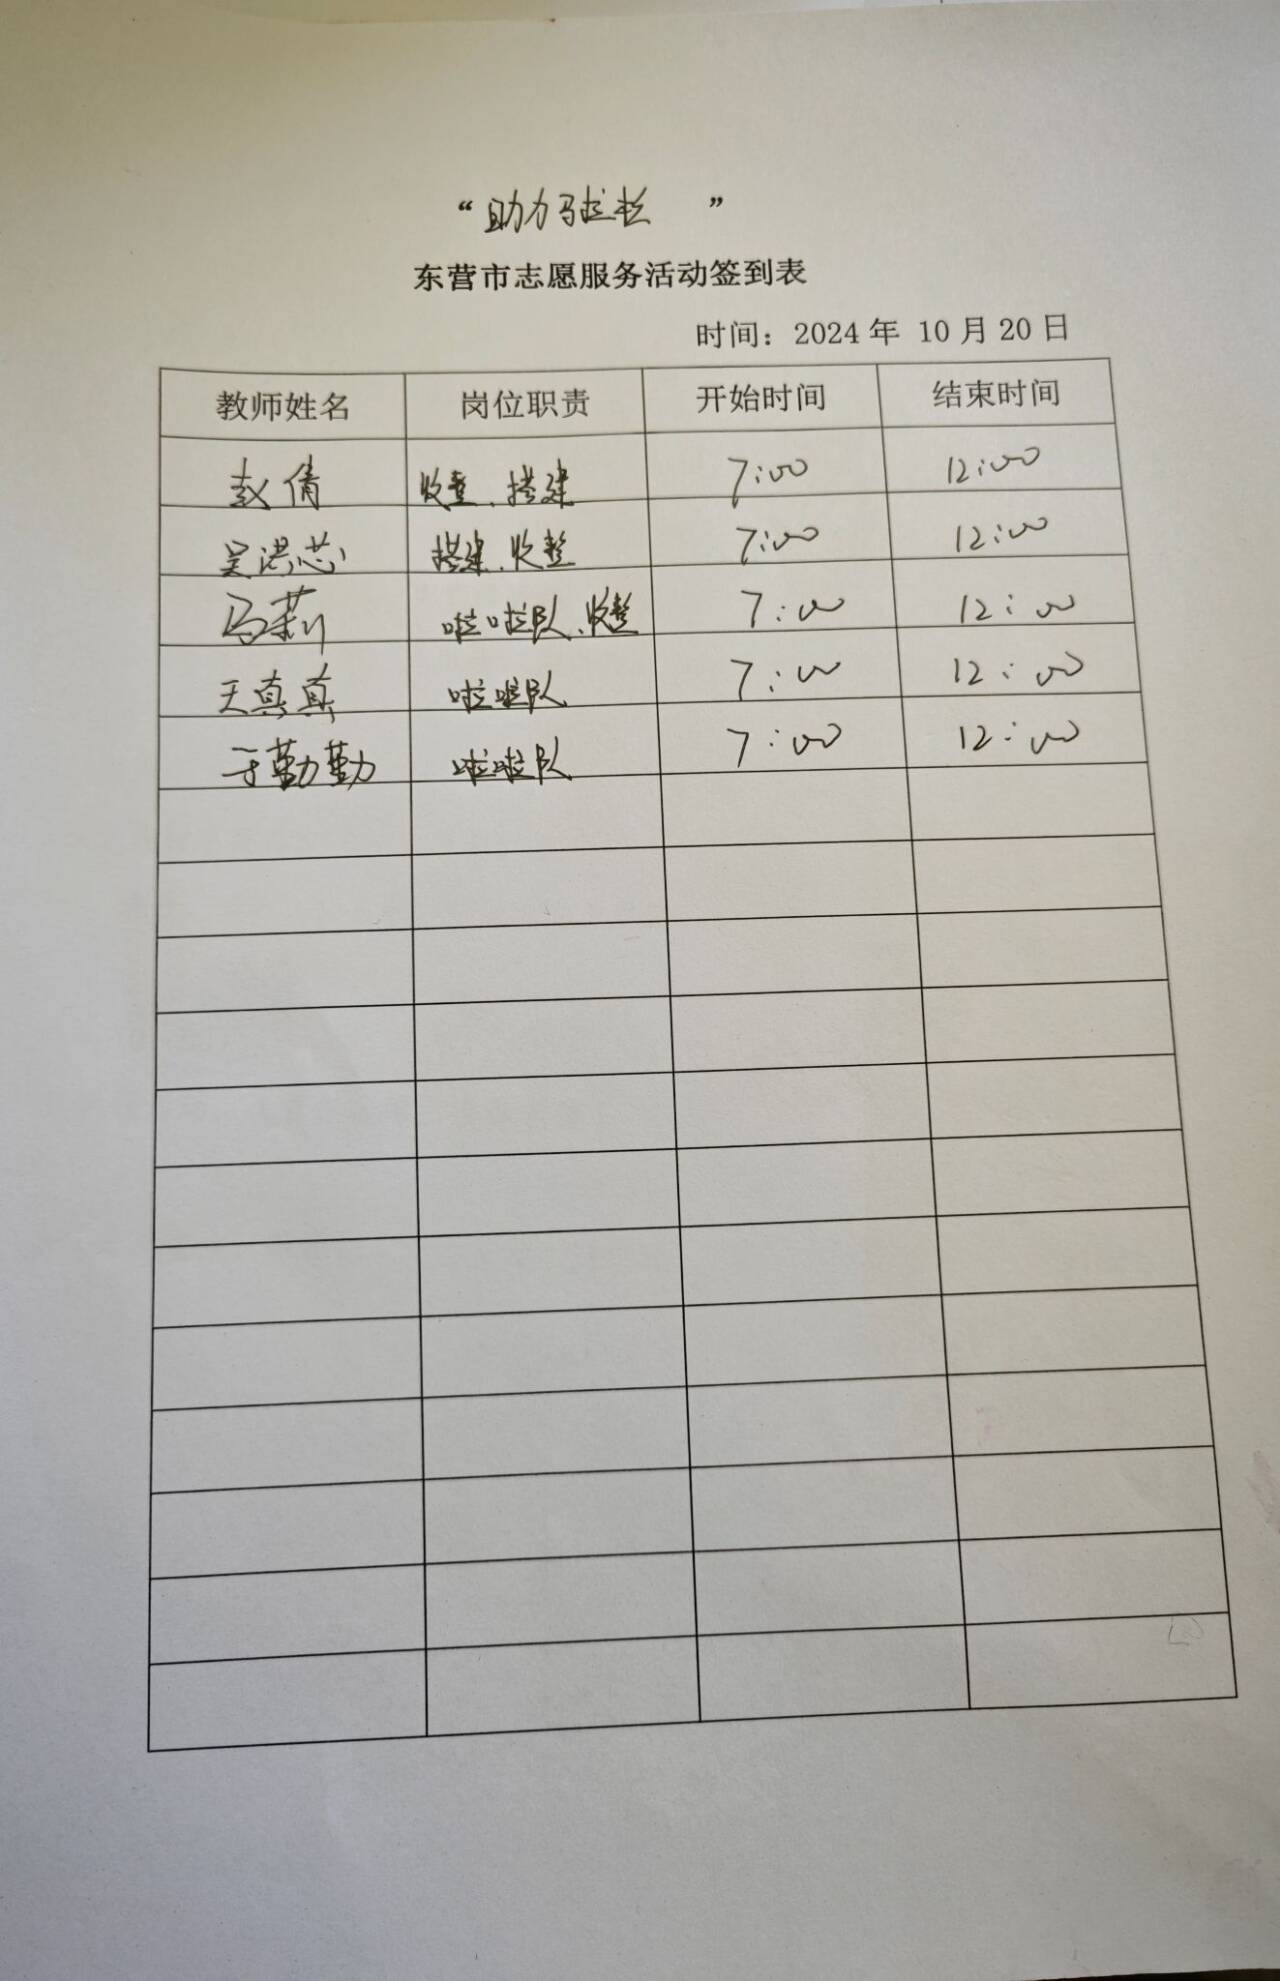 “助力马拉松 ”
东营市志愿服务活动签到表
时间：2024年 10月20日
教师姓名 岗位职责 开始时间 结束时间
赵倩 收整、搭建 7:00 12:00
吴洪芯 搭建、收整 7:00 12:00
马莉 啦啦队、收整 7:00 12:00
王真真 啦啦队 7:00 12:00
于勤勤 啦啦队 7:00 12:00